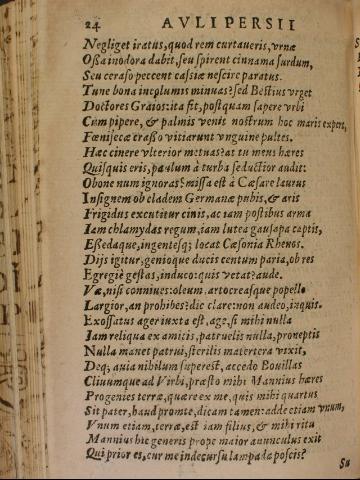 24 AVLI PERSII
Negliget iratus, quod rem curtaueris, vrnæ
Ossa inodora dabit, seu spirent cinnama surdum,
Seu ceraso peccent casiæ nescire paratus.
Tune bona incolumis minuas? sed Bestius vrget
Doctores Graios: ita fit, postquam sapere vrbi
Cum pipere, & palmis venit nostrum hoc maris expers,
Fœnisecæ crasso vitiarunt vnguine pultes.
Hæc cinere vlterior metuas? at tu meus hæres
Quisquis eris, paulum à turba seductior audi:
O bone num ignoras? missa est à Cæsare laurus
Insignem ob cladem Germanæ pubis, & aris
Frigidus excutitur cinis, ac iam postibus arma
Iam chlamydas regum, iam lutea gausapa captis,
Essedaque, ingentesq; locat Cæsonia Rhenos.
Dijs igitur, genioque ducis centum paria, ob res
Egregiè gestas, induco: quis vetat? aude.
Væ, nisi conniues: oleum artocreasque popello
Largior, an prohibes? dic clare: non audeo, inquis.
Exossatus ager iuxta est, age, si mihi nulla
Iam reliqua ex amitis, patruelis nulla, proneptis
Nulla manet patrui, sterilis matertera vixit,
Deq; auia nihilum superest, accedo Bouillas
Cliuumque ad Virbi, præsto mihi Mannius hæres
Progenies terræ, quære ex me, quis mihi quartus
Sit pater, haud promte, dicam tamen: adde etiam vnum,
Vnum etiam, terræ, est iam filius, & mihi ritu
Mannius hic generis prope maior auunculus exit
Qui prior es, cur me in decursu lampada poscis?
Su